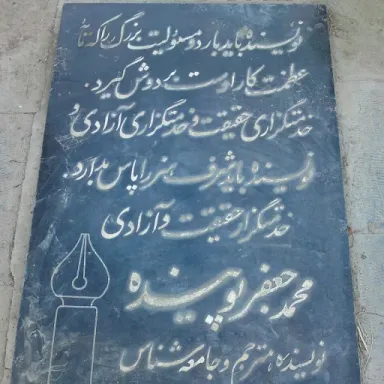 نویسنده باید بار دو مسئولیت بزرگ را که تا
عظمت کار اوست بر دوش گیرد.
خدمتگزاری حقیقت و خدمتگزاری آزادی و
نویسنده باید شرف هنر را پاس بدارد.
خدمتگزار حقیقت و آزادی
محمد جعفر پوینده
نویسنده، مترجم و جامعه شناس